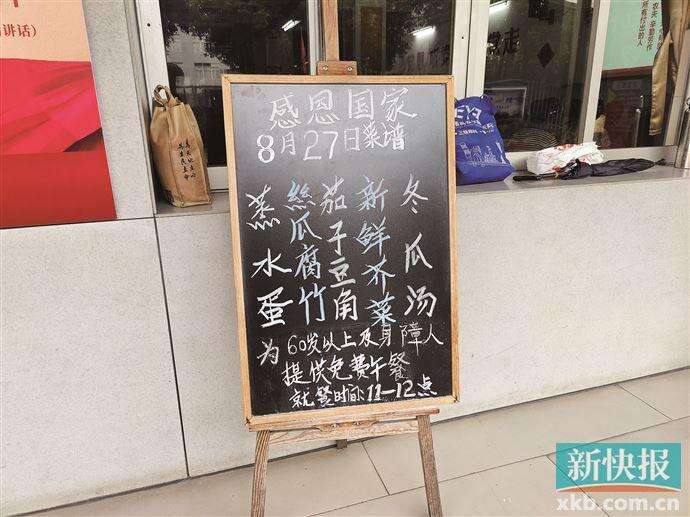 感恩国家
8月27日菜谱
蒸水蛋
丝瓜腐竹
茄子豆角
新鲜芥菜
冬瓜汤
为60岁以上及身障人
提供免费午餐
就餐时间:11-12点
讲话）
新快报
xkb.com.cn